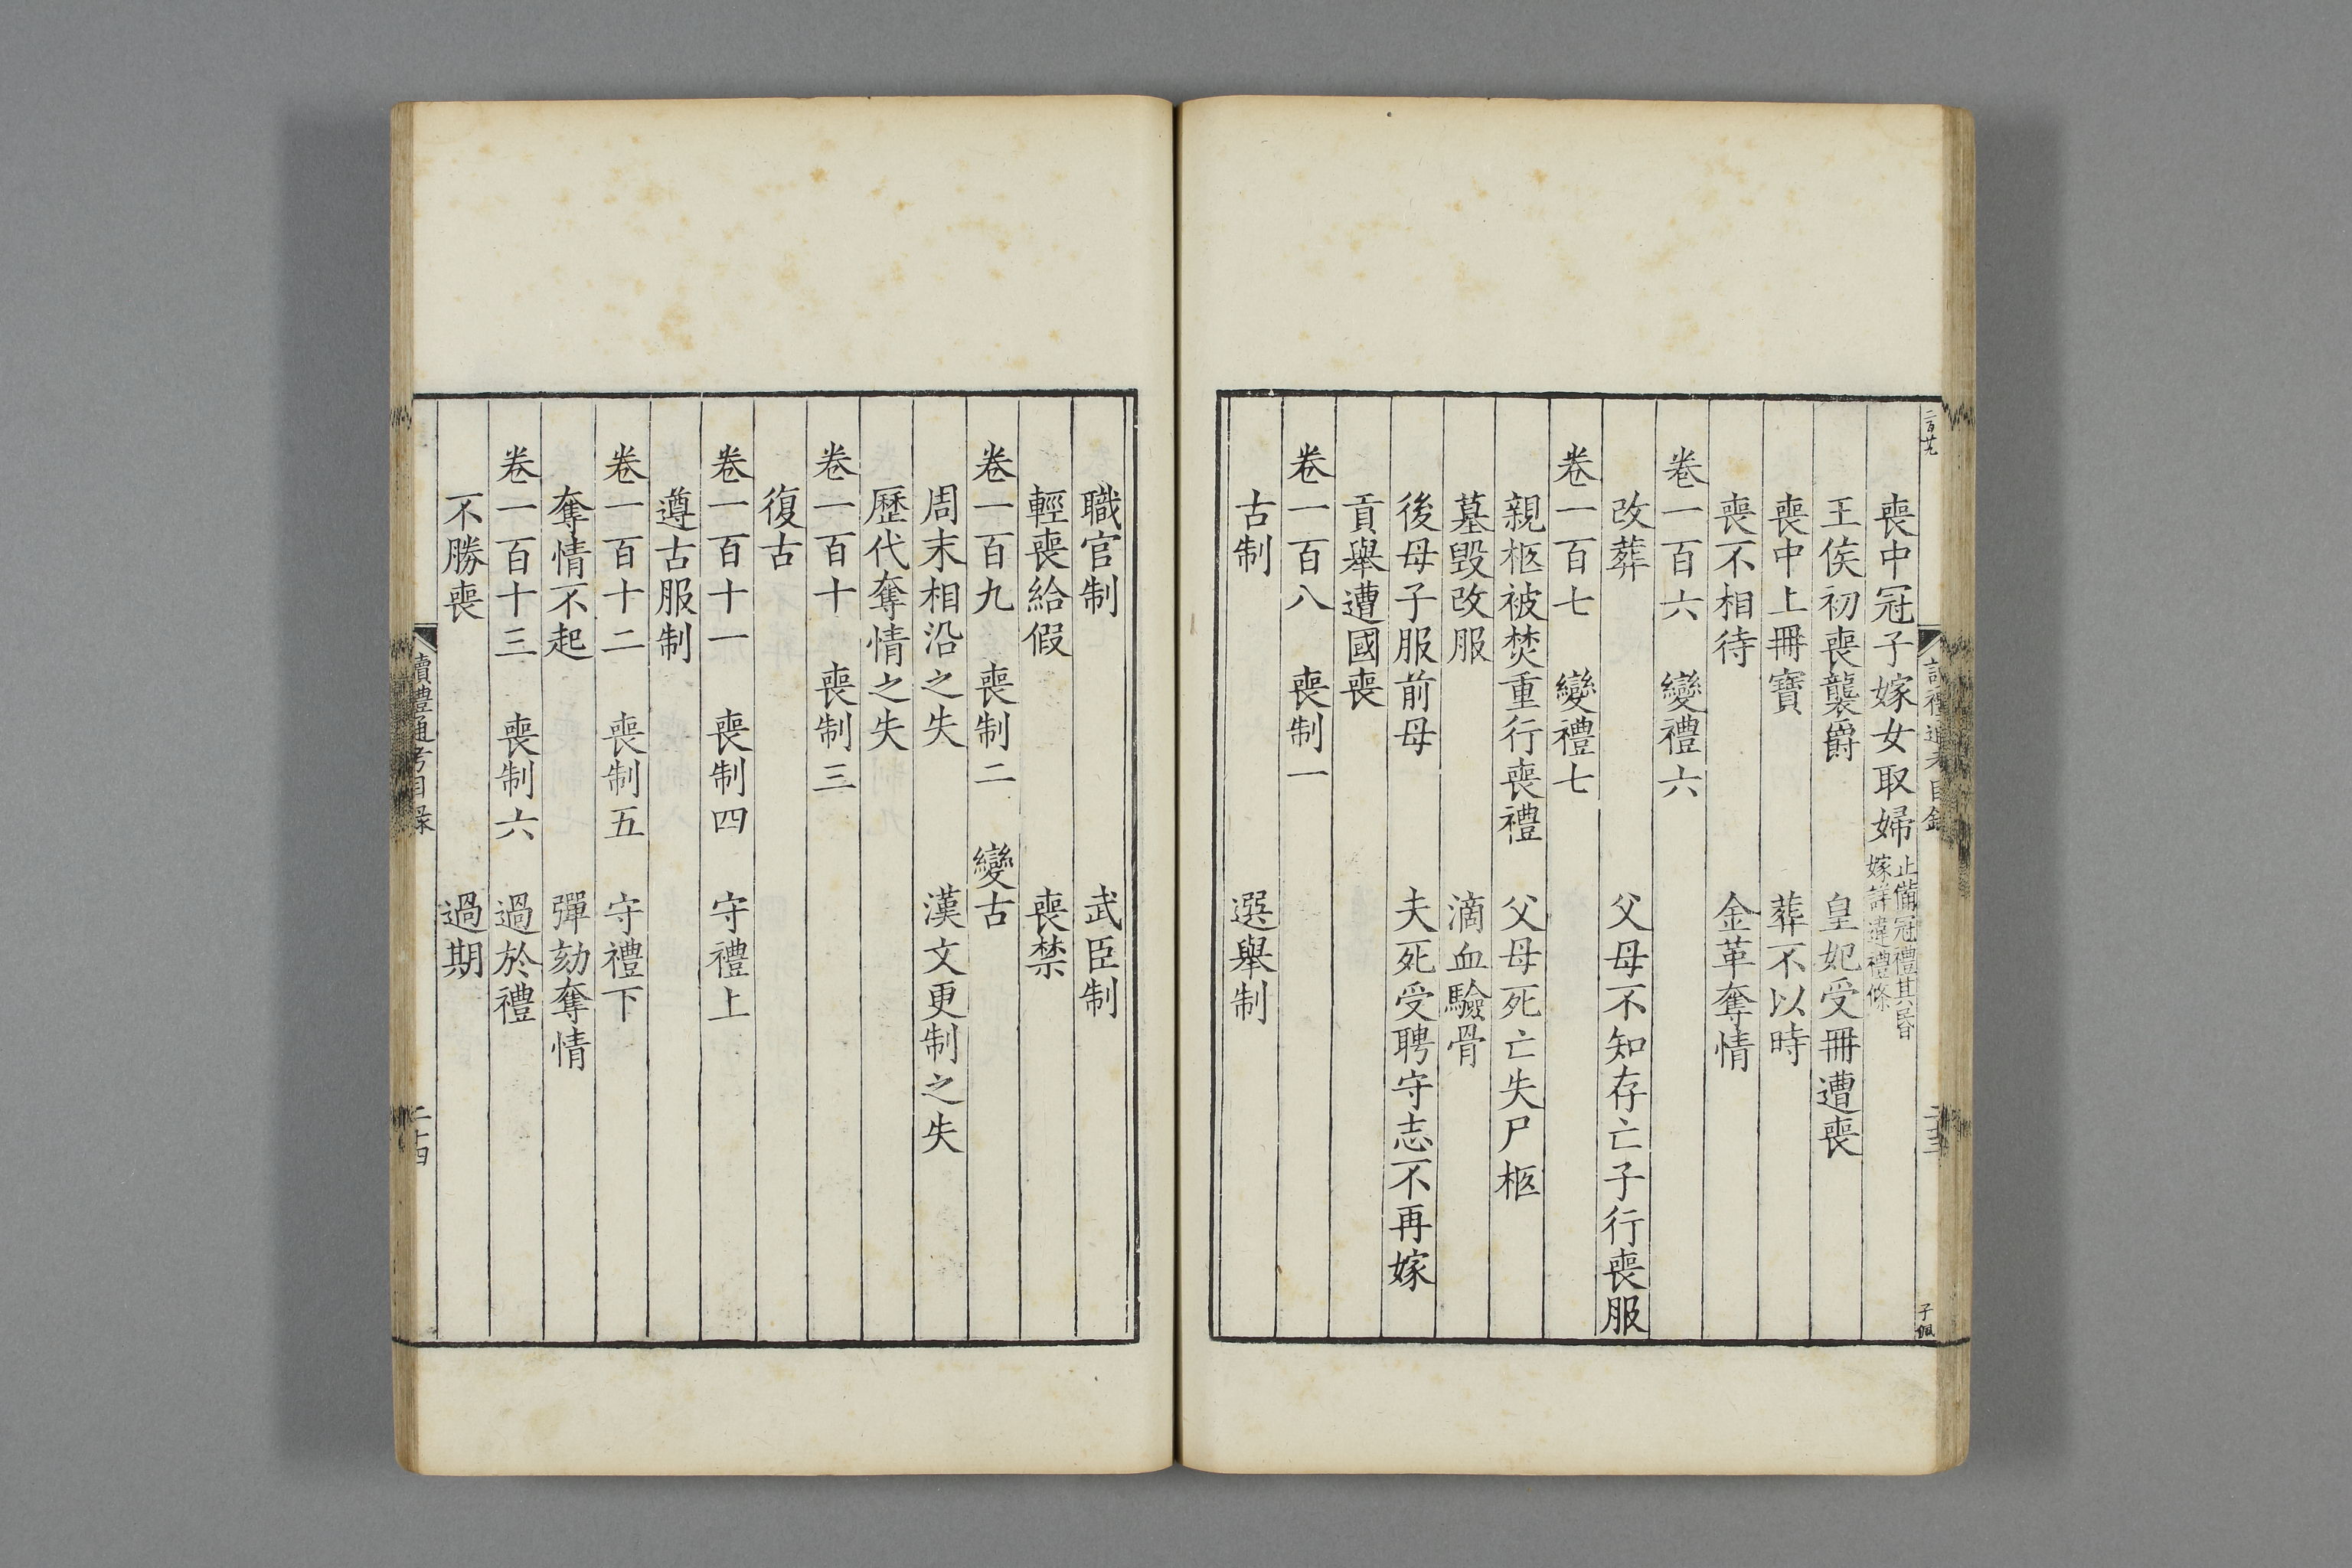 喪中冠子嫁女取婦 止備冠禮其昬嫁詳違禮條
王侯初喪襲爵 皇妃受冊遭喪
喪中上冊寶 葬不以時
喪不相待 金革奪情
卷一百六 變禮六
改葬 父母不知存亡子行喪服
卷一百七 變禮七
親柩被焚重行喪禮 父母死亡失尸柩
墓毀改服 滴血驗骨
後母子服前母 夫死受聘守志不再嫁
貢舉遭國喪
卷一百八 喪制一
古制 選舉制
職官制 武臣制
輕喪給假 喪禁
卷一百九 喪制二 變古
周末相沿之失 漢文更制之失
歷代奪情之失
卷一百十 喪制三
復古
卷一百十一 喪制四 守禮上
遵古服制
卷一百十二 喪制五 守禮下
奪情不起 彈劾奪情
卷一百十三 喪制六 過於禮
不勝喪 過期
讀禮通考目錄 二十四